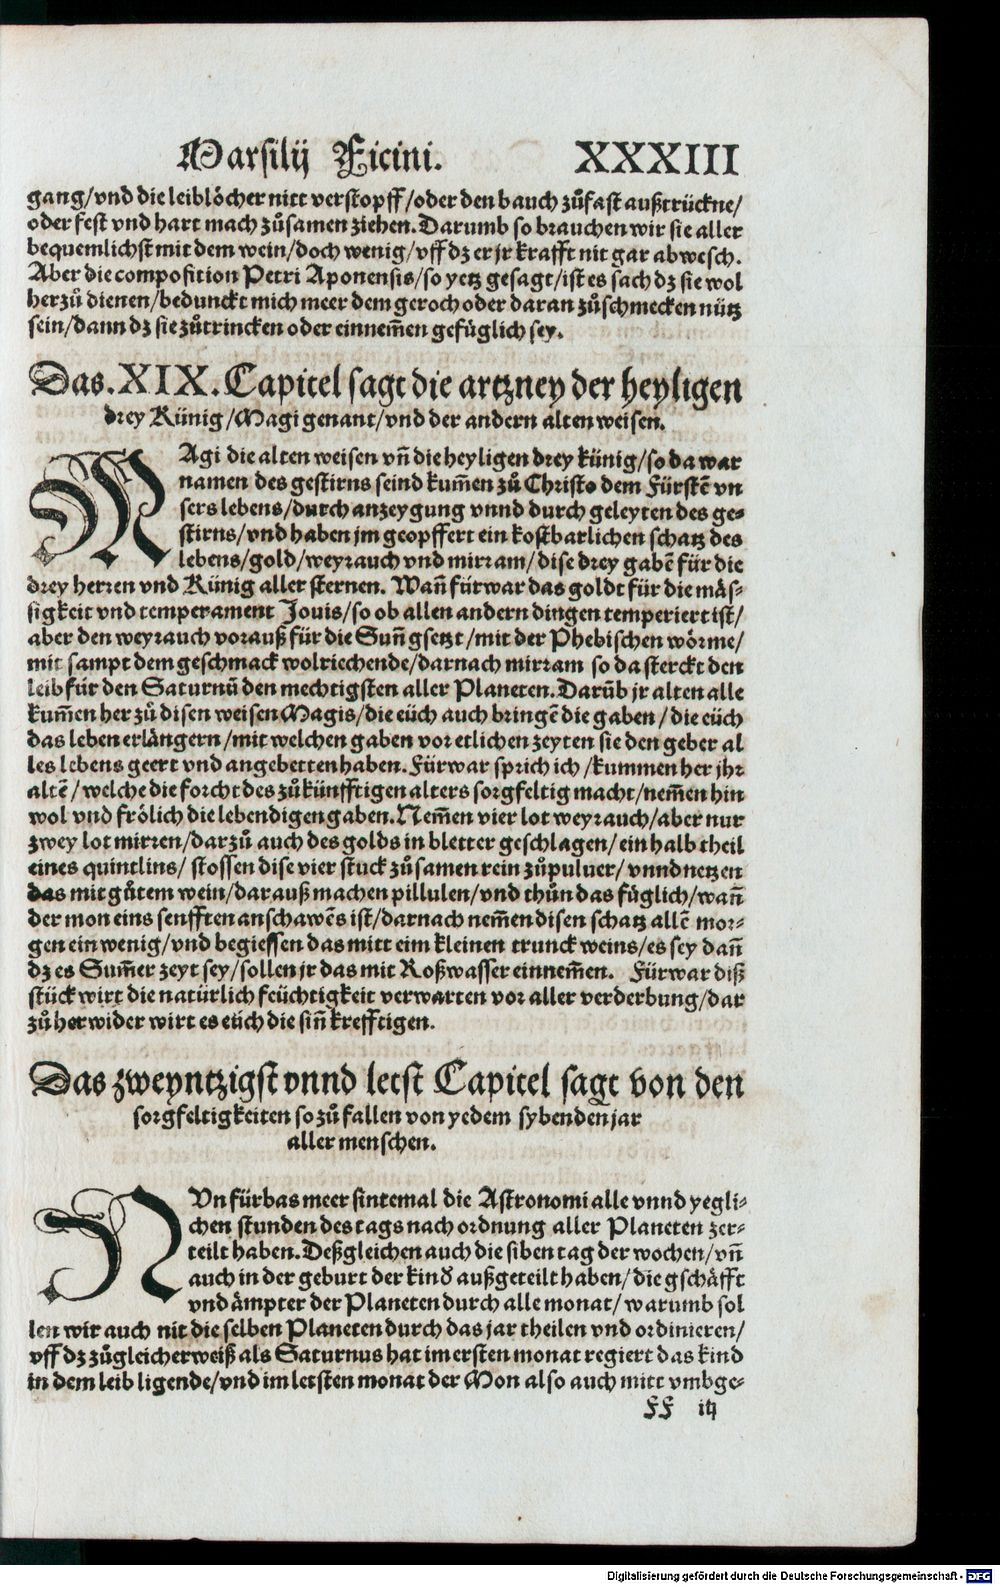 Marsilij Ficini. XXXIII
gang/vnd die leiblöcher nitt verstopff/oder den bauch zůfast außtrückne/
oder fest vnd hart mach zůsamen ziehen. Darumb so brauchen wir sie aller
bequemlichst mit dem wein/doch wenig/vff dz er jr krafft nit gar abwesch.
Aber die composition Petri Aponensis/so yetz gesagt/ist es sach dz sie wol
herzů dienen/bedunckt mich meer dem geroch oder daran zůschmecken nütz
sein/dann dz sie zůtrincken oder einnem̄en gefüglich sey.
Das. XIX. Capitel sagt die artzney der heyligen
drey Künig/Magi genant/vnd der andern alten weisen.
MAgi die alten weisen vn̄ die heyligen drey künig/so da war
namen des gestirns seind kum̄en zů Christo dem Fürstē vn
sers lebens/durch anzeygung vnnd durch geleyten des ge-
stirns/vnd haben jm geopffert ein kostbarlichen schatz des
lebens/gold/weyrauch vnd mirram/dise drey gabē für die
drey herren vnd Künig aller sternen. Wan̄ fürwar das goldt für die mäs-
sigkeit vnd temperament Jouis/so ob allen andern dingen temperiert ist/
aber den weyrauch vorauß für die Sun̄ gsetzt/mit der Phebischen wörme/
mit sampt dem geschmack wolriechende/darnach mirram so da sterckt den
leib für den Saturnū den mechtigsten aller Planeten. Darūb jr alten alle
kum̄en her zů disen weisen Magis/die eüch auch bringē die gaben/die eüch
das leben erlängern/mit welchen gaben vor etlichen zeyten sie den geber al
les lebens geert vnd angebetten haben. Fürwar sprich ich/kummen her jhr
altē/welche die forcht des zůkünfftigen alters sorgfeltig macht/nem̄en hin
wol vnd frölich die lebendigen gaben. Nem̄en vier lot weyrauch/aber nur
zwey lot mirren/darzů auch des golds in bletter geschlagen/ein halb theil
eines quintlins/ stossen dise vier stuck zůsamen rein zůpuluer/vnnd netzen
das mit gůtem wein/darauß machen pillulen/vnd thůn das füglich/wan̄
der mon eins senfften anschawēs ist/darnach nem̄en disen schatz allē mor-
gen ein wenig/vnd begiessen das mitt eim kleinen trunck weins/es sey dan̄
dz es Sum̄er zeyt sey/sollen jr das mit Roßwasser einnem̄en. Fürwar diß
stück wirt die natürlich feüchtigkeit verwarten vor aller verderbung/dar
zů herwider wirt es eüch die sin̄ krefftigen.
Das zweyntzigst vnnd letst Capitel sagt von den
sorgfeltigkeiten so zů fallen von yedem sybenden jar
aller menschen.
NVn fürbas meer sintemal die Astronomi alle vnnd yegli-
chen stunden des tags nach ordnung aller Planeten zer-
teilt haben. Deßgleichen auch die siben tag der wochen/vn̄
auch in der geburt der kind außgeteilt haben/die gschäfft
vnd ämpter der Planeten durch alle monat/warumb sol
len wir auch nit die selben Planeten durch das jar theilen vnd ordinieren/
vff dz zůgleicherweiß als Saturnus hat im ersten monat regiert das kind
in dem leib ligende/vnd im letsten monat der Mon also auch mitt vmbge-
FF iij
Digitalisierung gefördert durch die Deutsche Forschungsgemeinschaft - DFG